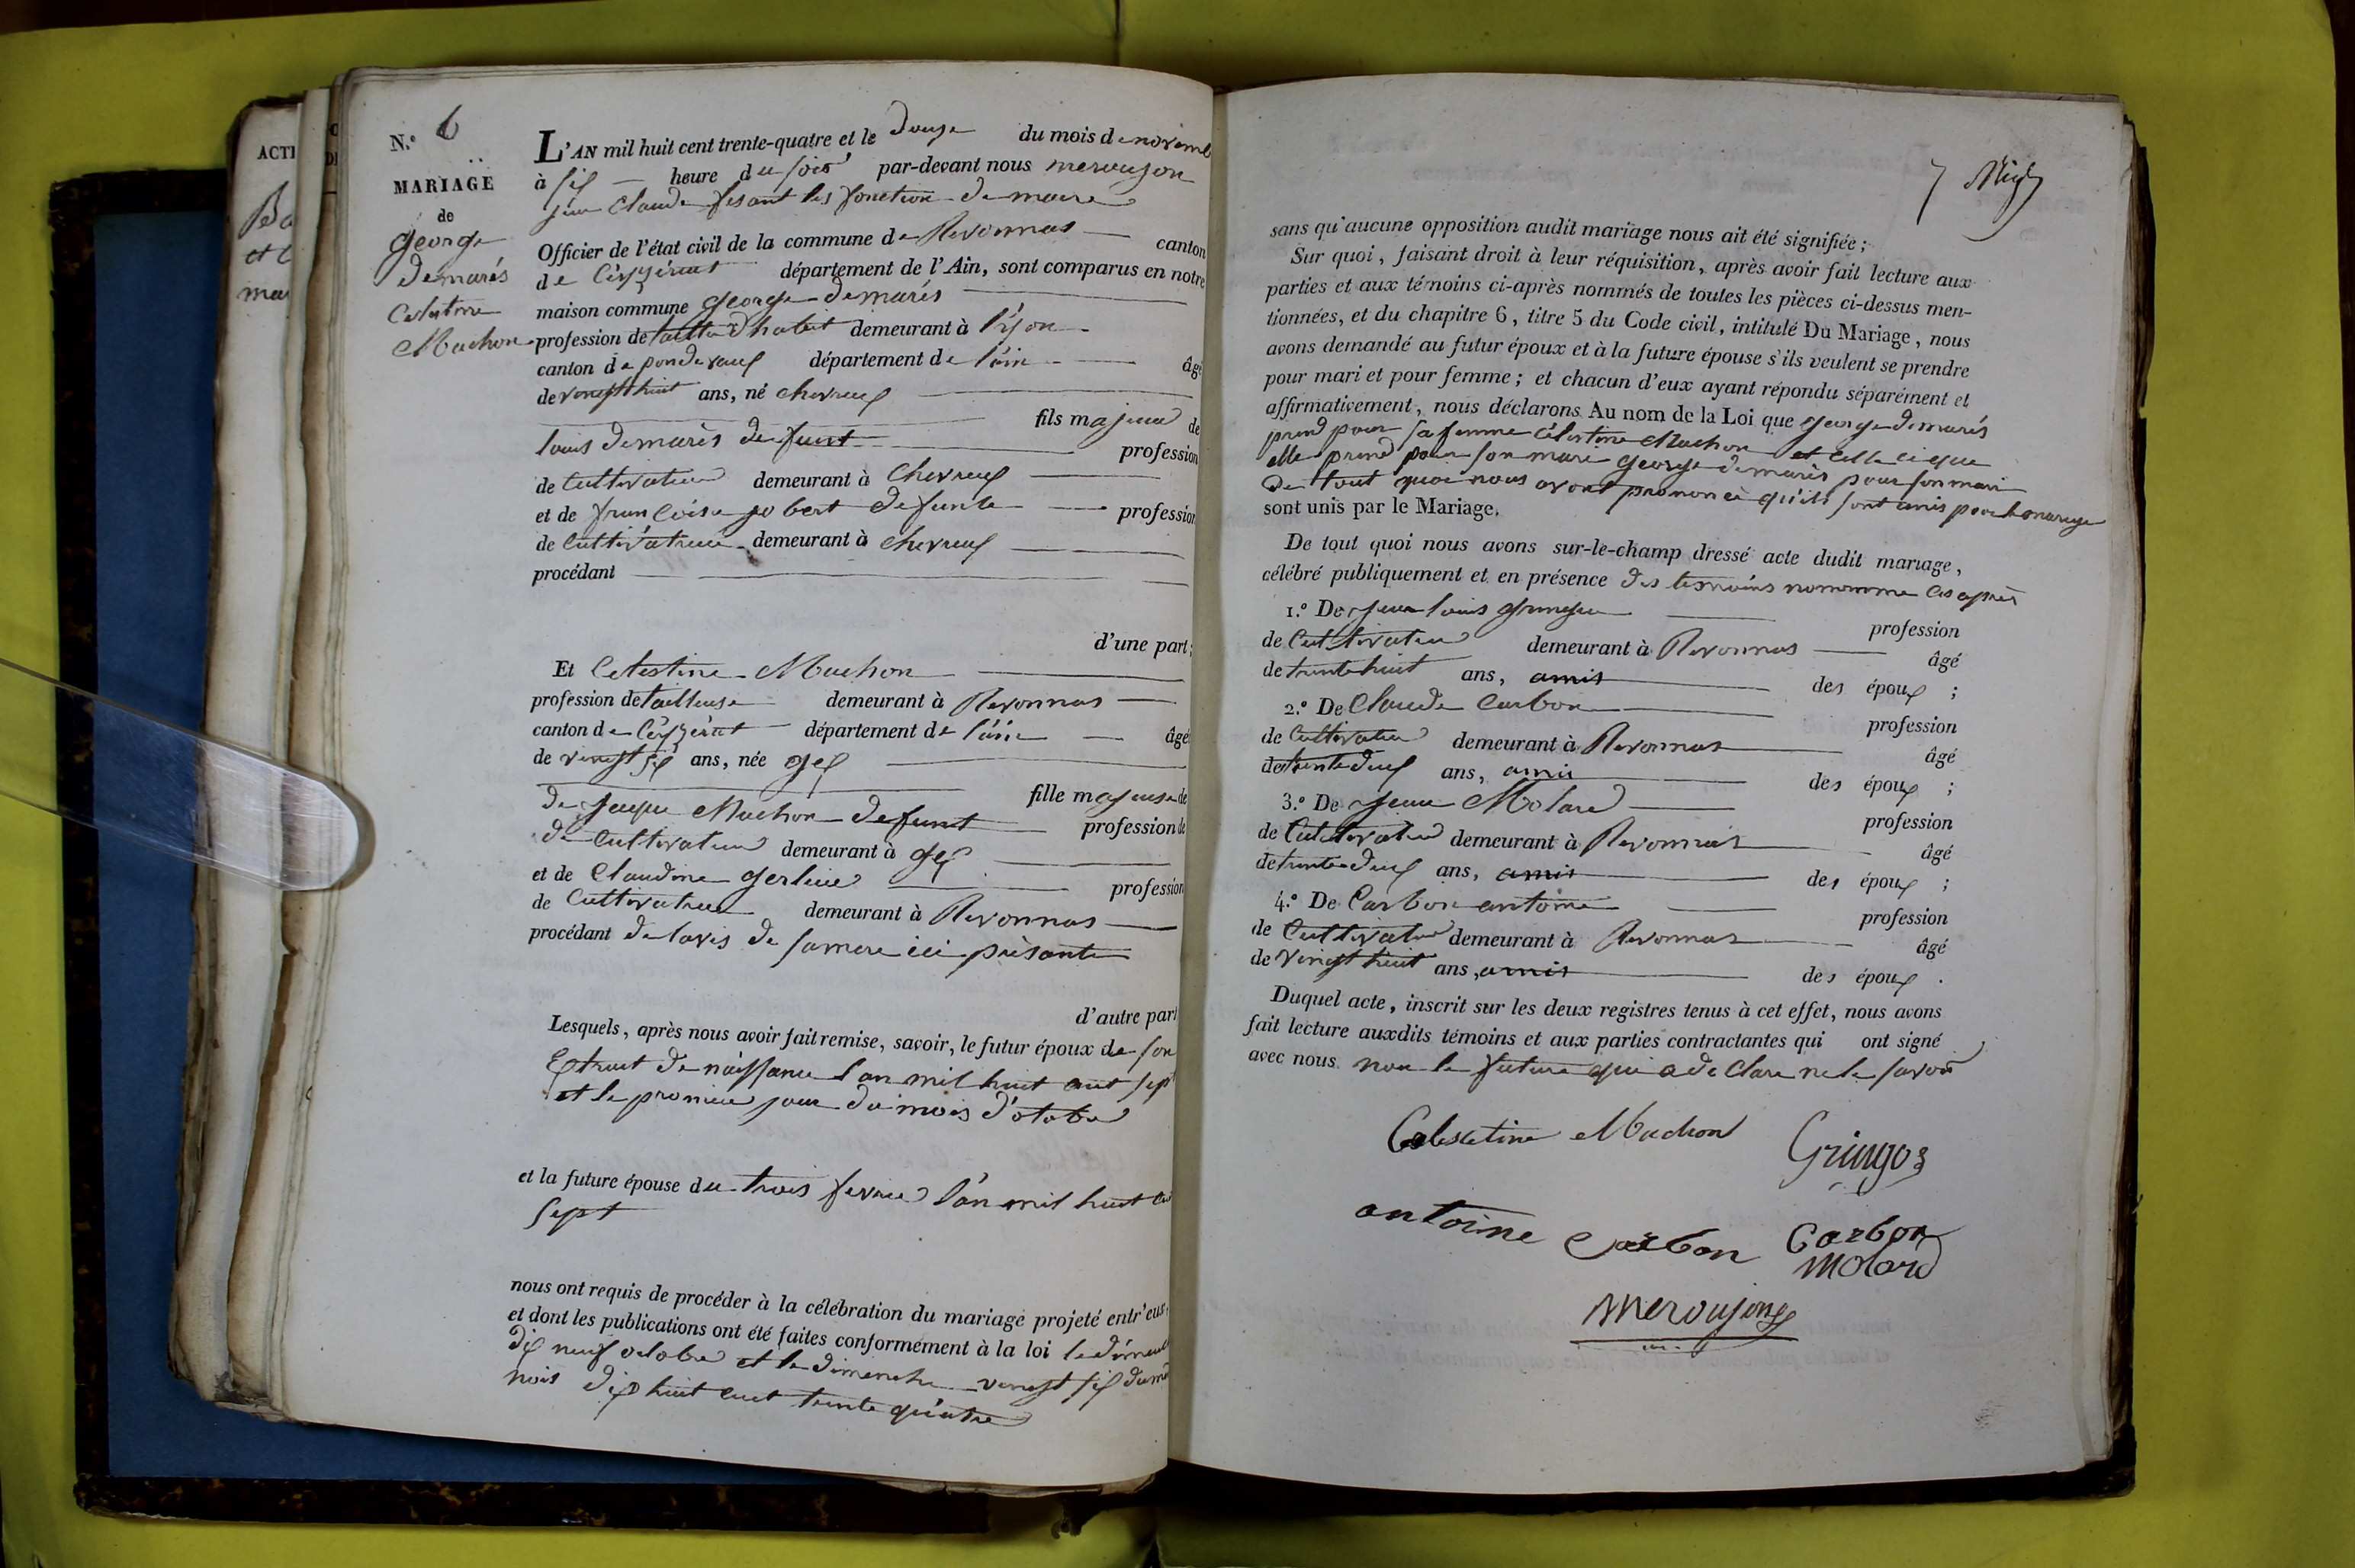 ACTE
Ba
et C
mar
N.° 6
MARIAGE
de
george
demarés
Celestine
Muchon
L'AN mil huit cent trente-quatre et le douze du mois de novemb
à six heure du soir par-devant nous merouzon
jean Claude fesant les fonction de maire
Officier de l'état civil de la commune de Revonnas canton
de Ceyzeriat département de l'Ain, sont comparus en notre
maison commune george demarés
profession de tailleur d'habit demeurant à
canton de pondevaux département de l'ain âgé
de vingt huit ans, né chevroux
fils majeur de
louis demarés defunt profession
de Cultivateur demeurant à Chevroux
et de francoise jobert defunte profession
de Cultivatrice demeurant à chevroux
procédant
d'une part;
Et Celestine Muchon
profession de tailleuse demeurant à Revonnas
canton de Ceyzeriat département de l'ain âgé
de vingt six ans, née gex
fille majeure de
de jaque Muchon defunt profession de
de Cultivateur demeurant à gex
et de Claudine profession
de Cultivatrice demeurant à Revonnas
procédant de lavis de samere ici présante
d'autre part
Lesquels, après nous avoir fait remise, savoir, le futur époux de son
Extrait de naissance l'an mil huit cent sept
et le promier jour du mois d'otobre
et la future épouse du trois fevrier l'an mil huit cent
sept
nous ont requis de procéder à la célébration du mariage projeté entr'eux,
et dont les publications ont été faites conformément à la loi le dimanche
dix neuf octobre et le dimenche vingt six dumê
mois dix huit cent trente quatre
7
sans qu'aucune opposition audit mariage nous ait été signifiée;
Sur quoi, faisant droit à leur réquisition, après avoir fait lecture aux
parties et aux témoins ci-après nommés de toutes les pièces ci-dessus men-
tionnées, et du chapitre 6, titre 5 du Code civil, intitulé Du Mariage, nous
avons demandé au futur époux et à la future épouse s'ils veulent se prendre
pour mari et pour femme; et chacun d'eux ayant répondu séparément et
affirmativement, nous déclarons Au nom de la Loi que george demarés
prend pour sa femme célestine Muchon et celle ci que
elle prend pour son mari george demarés pour son mari
de tout quoi nous avont prononcé qu'ils sont unis par le mariage
sont unis par le Mariage.
De tout quoi nous avons sur-le-champ dressé acte dudit mariage,
célébré publiquement et en présence des temoins nomomme ces après
1.° De jean louis profession
de Cultivateur demeurant à Revonnas âgé
de trente huit ans, amis des époux ;
2.° De Claude Carbon profession
de Cultivateur demeurant à Revonnas âgé
de trente deux ans, amis des époux ;
3.° De jean Molard profession
de Cultivateur demeurant à Revonnas âgé
de trente deux ans, amis des époux ;
4.° De Carbon antoine profession
de Cultivateur demeurant à Revonnas âgé
de vingt huit ans, amis des époux .
Duquel acte, inscrit sur les deux registres tenus à cet effet, nous avons
fait lecture auxdits témoins et aux parties contractantes qui ont signé
avec nous non le future qui a de Clare ne le savoir
Celesctine Muchon Gringoz
antoine Carbon Carbon
Molard
Merouzong